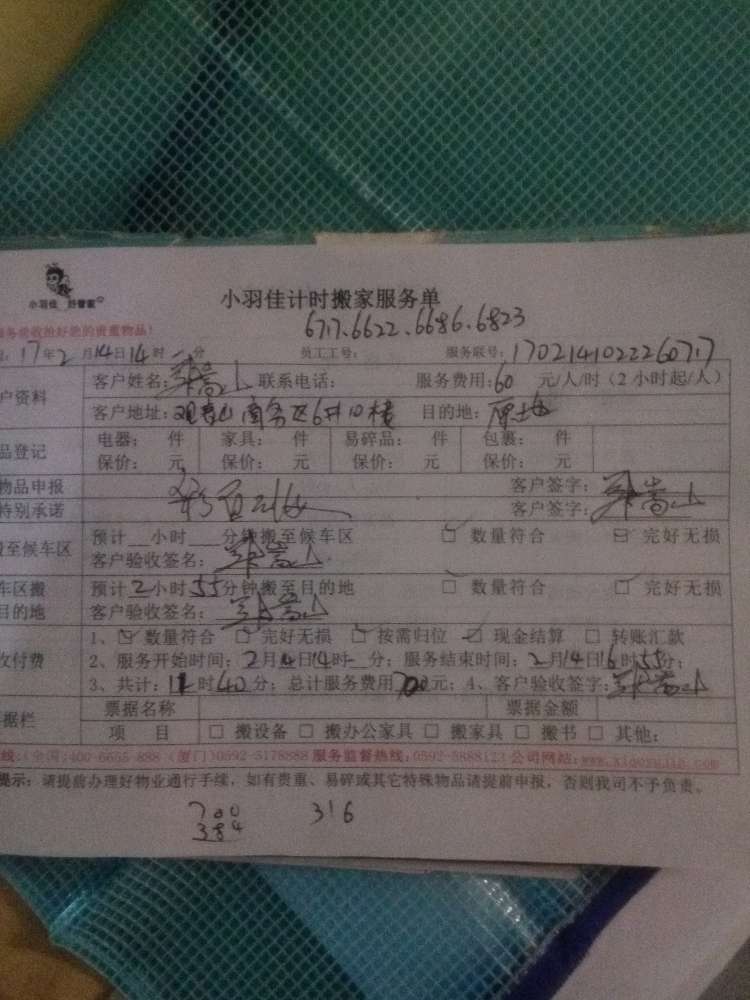 小羽佳 好管家
小羽佳计时搬家服务单
6717.6622.6686.6823
务必收拾好您的贵重物品!
17年2月14日14时 分 员工工号: 服务联号:1702141022260717
户资料
客户姓名: 联系电话: 服务费用:60 元/人/时(2小时起/人)
客户地址:观音山商务区6号10楼 目的地:原地
品登记
电器: 件 家具: 件 易碎品: 件 包裹: 件
保价: 元 保价: 元 保价: 元 保价: 元
物品申报 客户签字:
特别承诺 客户签字:
搬至候车区
预计 小时 分钟搬至候车区 数量符合 完好无损
客户验收签名:
车区搬
目的地
预计2小时55分钟搬至目的地 数量符合 完好无损
客户验收签名:
收付费
1、数量符合 完好无损 按需归位 现金结算 转账汇款
2、服务开始时间:2月14日14时-分;服务结束时间:2月14日16时55分;
3、共计:11时40分;总计服务费用700元;4、客户验收签字:
据栏
票据名称 票据金额
项 目 搬设备 搬办公家具 搬家具 搬书 其他:
线:(全国)400-6655-888 (厦门)0592-5178888 服务监督热线:0592-5888123 公司网站:www.xiaoyujia.com
提示:请提前办理好物业通行手续,如有贵重、易碎或其它特殊物品请提前申报,否则我司不予负责。
700 316
384